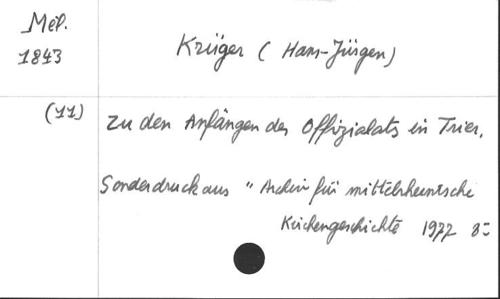 Mél.
1843
Krüger ( Hans-Jürgen)
(11)
Zu den Anfängen des Offizialats in Trier.
Sonderdruck aus " Archiv für mittelrheinische
Kirchengeschichte 1977 8°